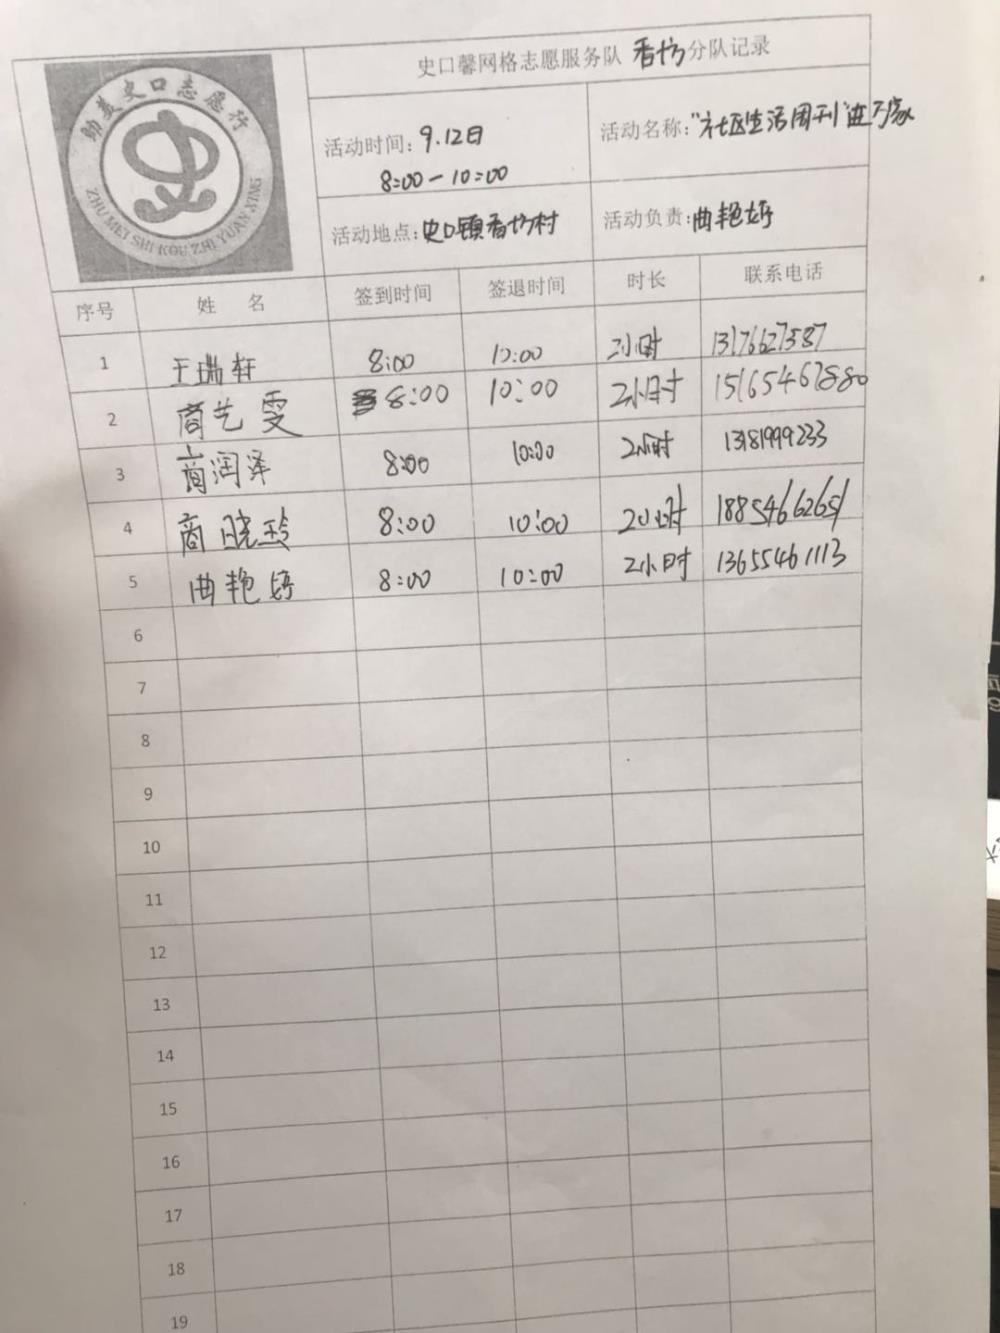 助美史口志愿行
ZHU MEI SHI KOU ZHI YUAN XING
史口馨网格志愿服务队 香坊 分队记录
活动时间：9.12日
8:00-10:00
活动名称："社区生活周刊"进万家
活动地点：史口镇香坊村
活动负责：曲艳婷
序号 姓 名 签到时间 签退时间 时长 联系电话
1 王瑞轩 8:00 10:00 2小时 13176627587
2 商艺雯 8:00 10:00 2小时 15165467880
3 商润泽 8:00 10:00 2小时 13181999233
4 商晓玲 8:00 10:00 2小时 18854662651
5 曲艳婷 8:00 10:00 2小时 13655461113
6
7
8
9
10
11
12
13
14
15
16
17
18
19